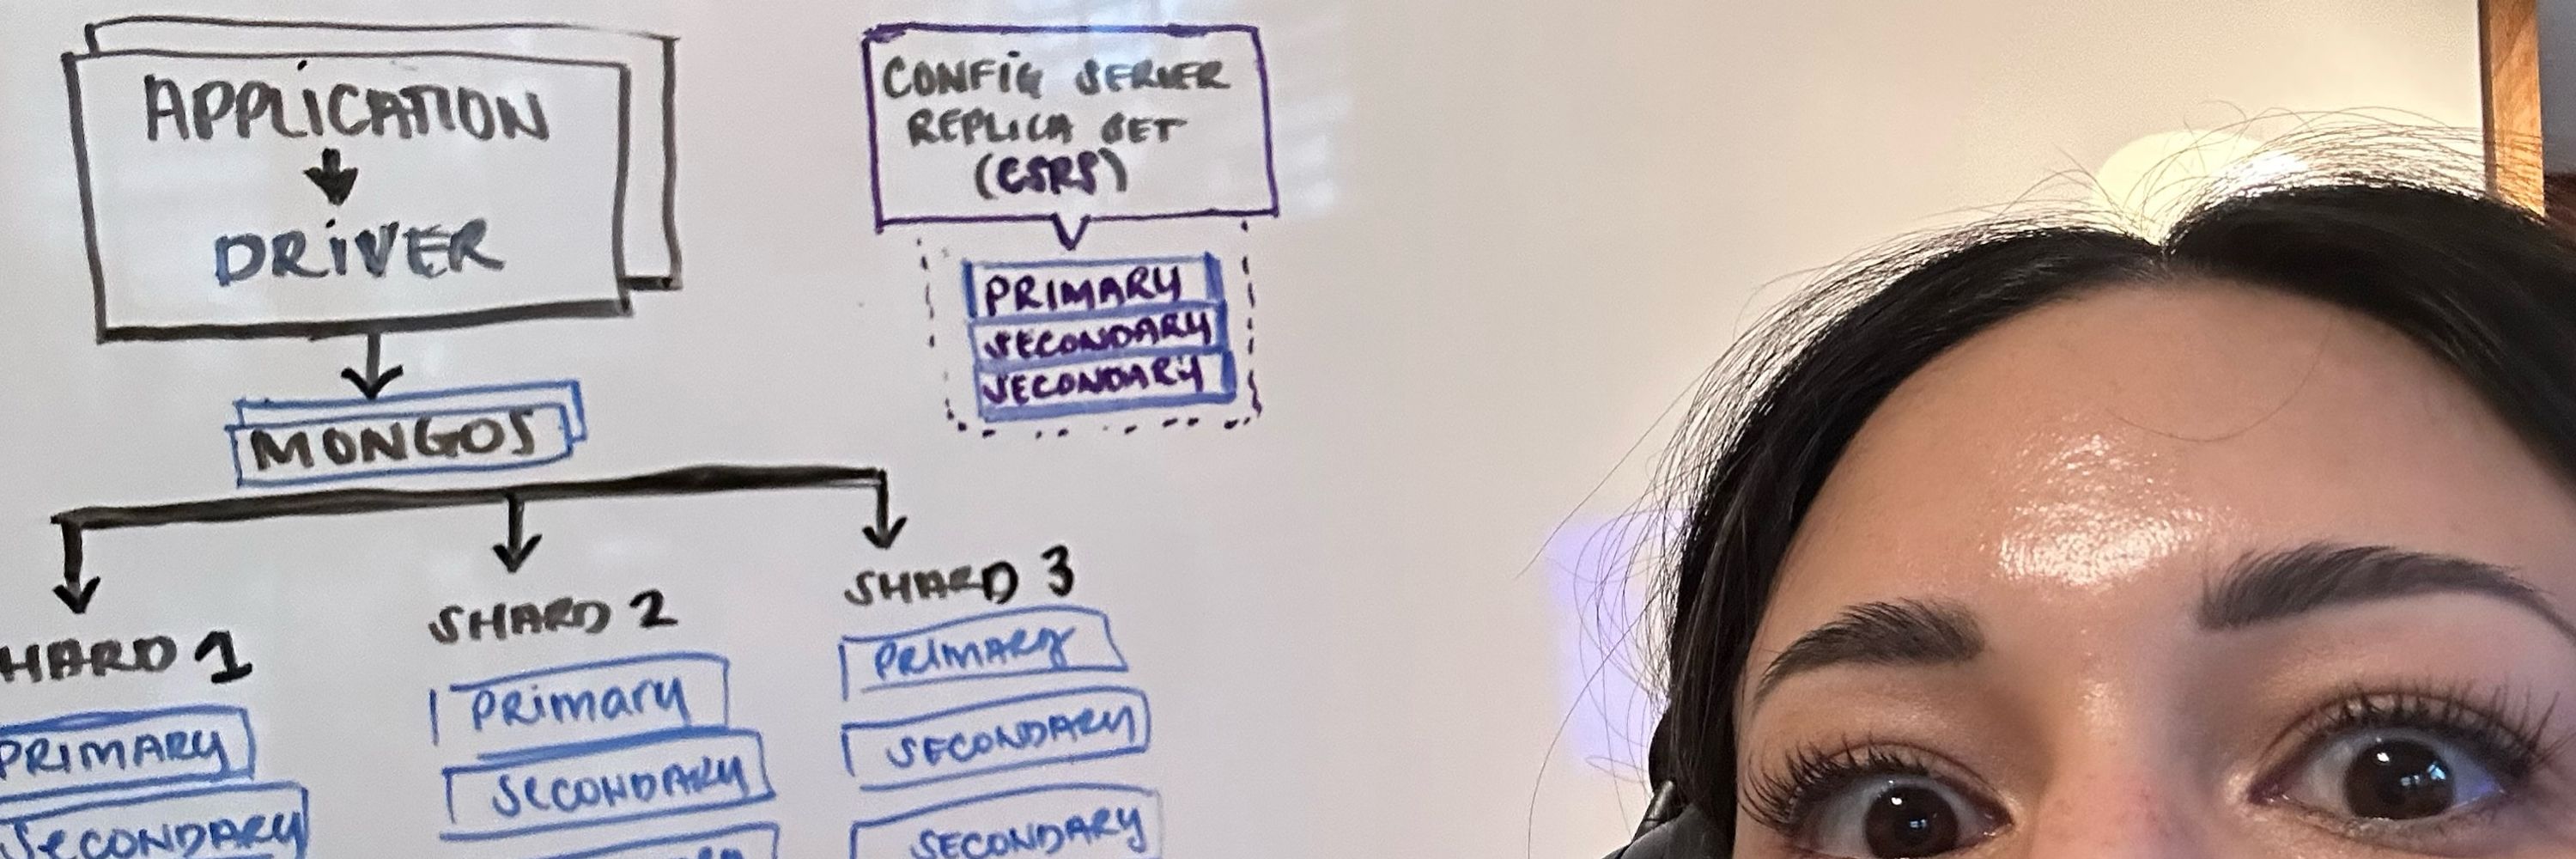 APPLICATION
DRIVER
CONFIG SERVER
REPLICA SET
(CSRS)
PRIMARY
SECONDARY
SECONDARY
MONGOS
HARD 1
PRIMARY
SECONDARY
SHARD 2
Primary
SECONDARY
SHARD 3
PRIMARY
SECONDARY
SECONDARY